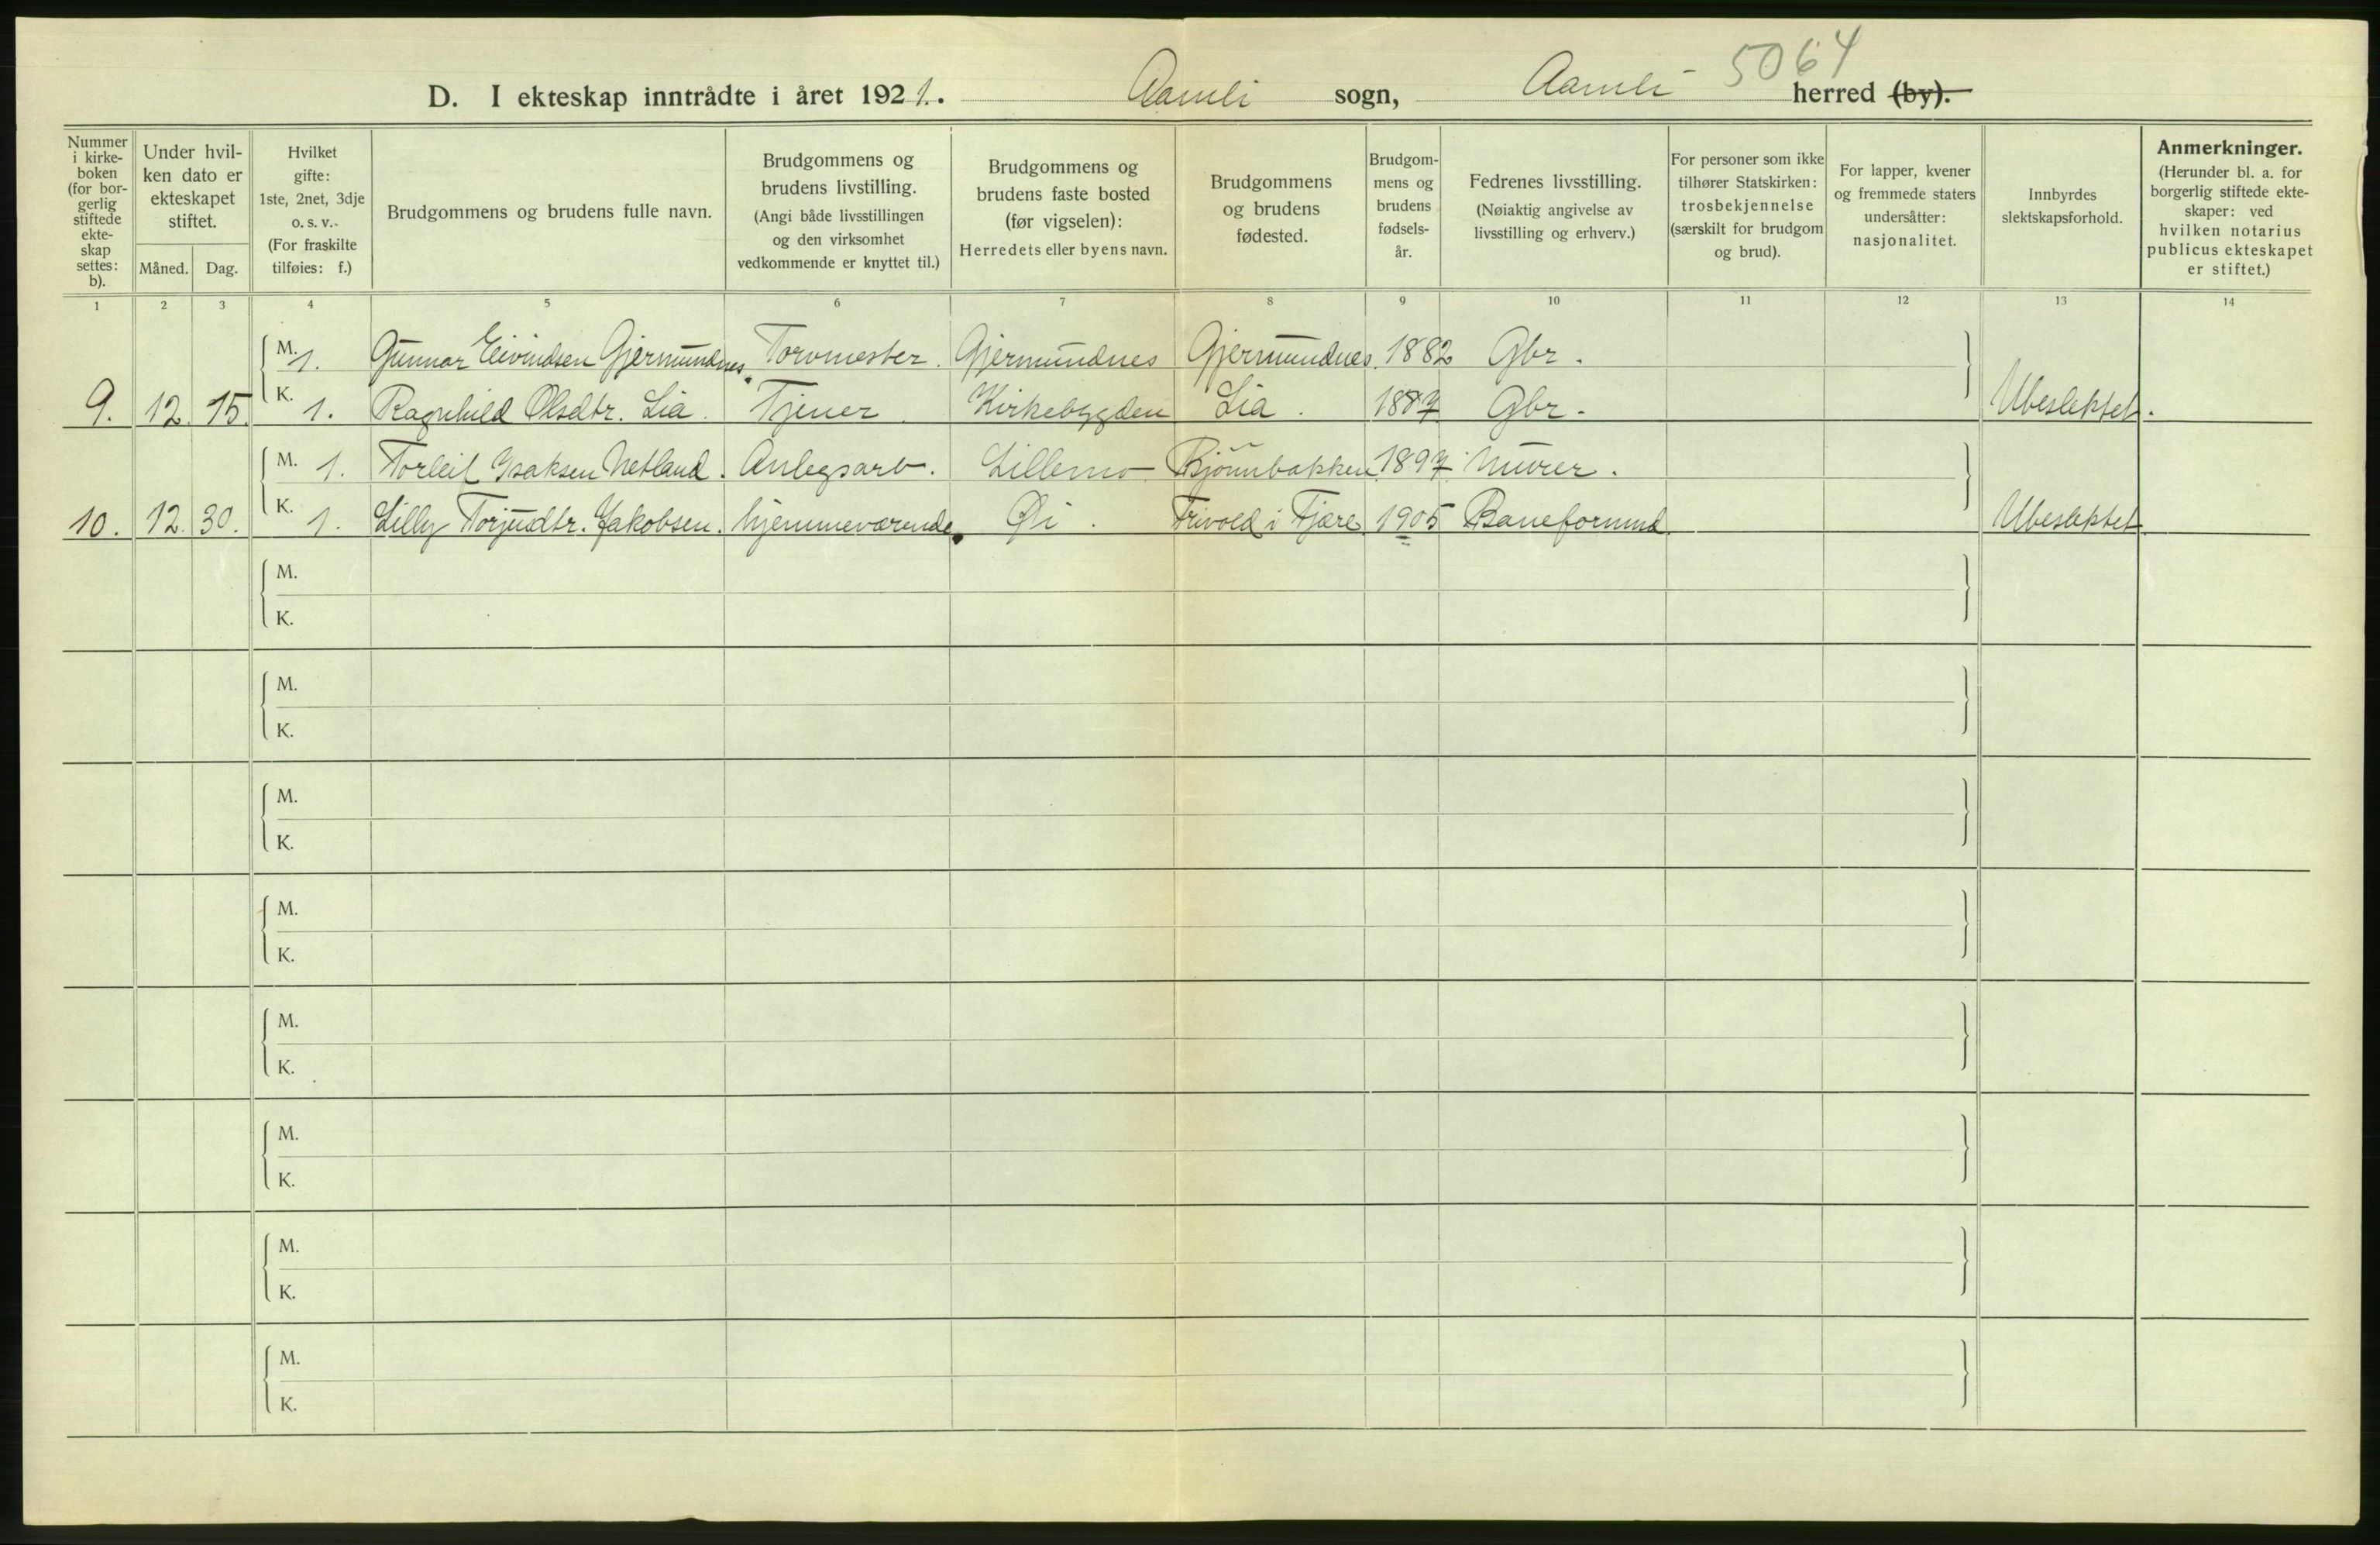 5064
D. I ekteskap inntrådte i året 1921. Aamli sogn, Aamli herred (by).
Nummer i kirkeboken (for borgerlig stiftede ekteskap settes: b).
Under hvilken dato er ekteskapet stiftet.
Måned. Dag.
Hvilket gifte: 1ste, 2net, 3dje o. s. v.. (For fraskilte tilføies: f.)
Brudgommens og brudens fulle navn.
Brudgommens og brudens livstilling. (Angi både livsstillingen og den virksomhet vedkommende er knyttet til.)
Brudgommens og brudens faste bosted (før vigselen): Herredets eller byens navn.
Brudgommens og brudens fødested.
Brudgommens og brudens fødselsår.
Fedrenes livsstilling. (Nøiaktig angivelse av livsstilling og erhverv.)
For personer som ikke tilhører Statskirken: trosbekjennelse (særskilt for brudgom og brud).
For lapper, kvener og fremmede staters undersåtter: nasjonalitet.
Innbyrdes slektskapsforhold.
Anmerkninger. (Herunder bl. a. for borgerlig stiftede ekteskaper: ved hvilken notarius publicus ekteskapet er stiftet.)
1 2 3 4 5 6 7 8 9 10 11 12 13 14
M. 1. Gunnar Eivindsen Gjermundnes. Torvmester. Gjermundnes Gjermundnes. 1882 Gbr.
9. 12. 15. K. 1. Ragnhild Olsdtr. Lia. Tjener. Kirkebygden Lia. 1887 Gbr. Ubeslektet.
M. 1. Torleif Isaksen Netland. Anlegsarb. Lillemo Bjönnbakken 1897. Murer.
10. 12. 30. K. 1. Lilly Torjusdtr. Jakobsen. hjemmeværende. Øi. Frivold i Fjære 1905 Baneformnd. Ubeslektet
M.
K.
M.
K.
M.
K.
M.
K.
M.
K.
M.
K.
M.
K.
M.
K.